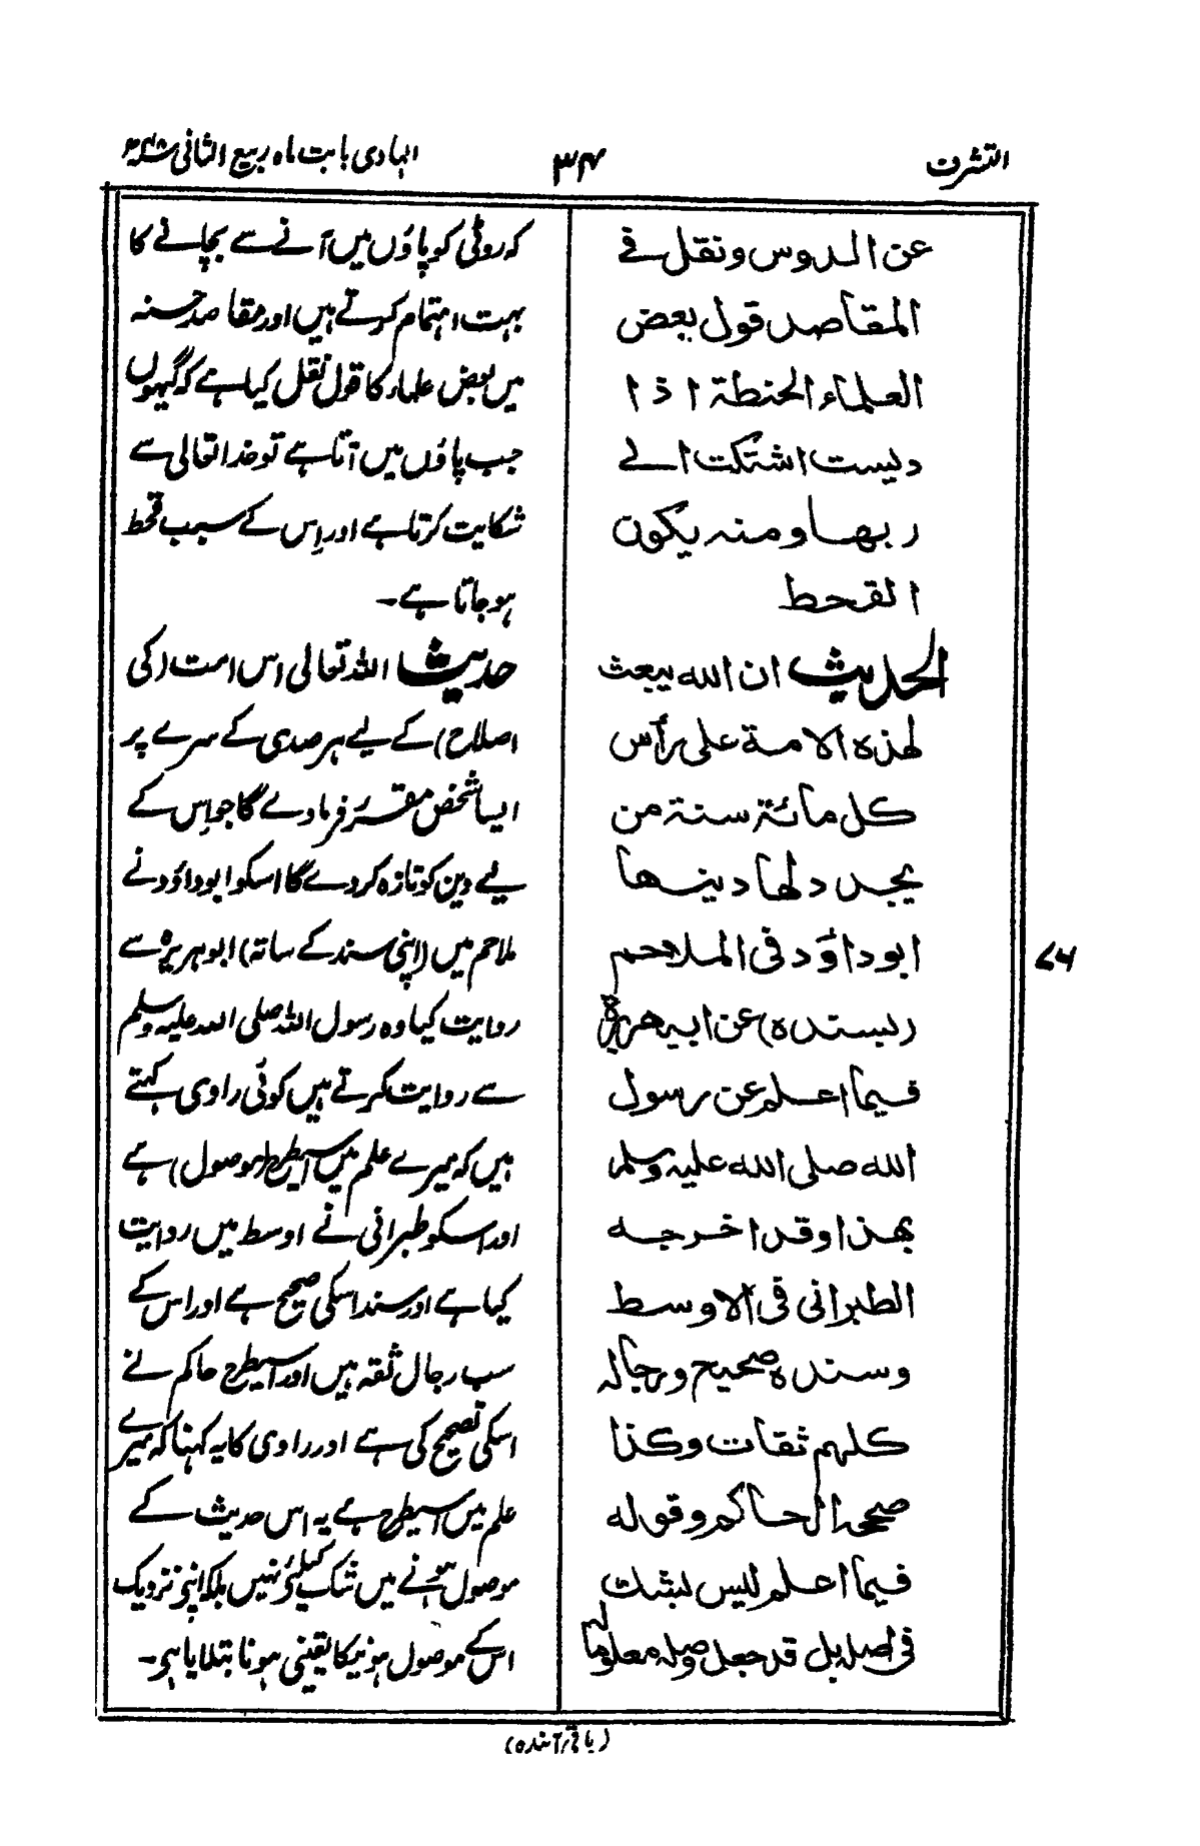 التشرف
۳۴
الہادی بابت ماہ ربیع الثانی
عن الدوس ونقل فے
المقاصد قول بعض
العلماء الحنطة اذا
دیست اشتکت الے
ربها ومنه یکون
القحط
الحدیث ان الله یبعث
لهذه الامة علی رأس
کل مائة سنة من
یجدد لها دینها
ابوداؤد فی الملاحم
(بسنده) عن ابی هریرة
فیما اعلم عن رسول
الله صلی الله علیه وسلم
بهذا وقد اخرجه
الطبرانی فی الاوسط
وسنده صحیح ورجاله
کلهم ثقات وکذا
صححه الحاکم وقوله
فیما اعلم لیس بشك
فی اصله بل قد جعل وصله معلوما له
کہ روٹی کو پاؤں میں آنے سے بچانے کا
بہت اہتمام کرتے ہیں اور مقاصد حسنہ
میں بعض علماء کا قول نقل کیا ہے کہ گیہوں
جب پاؤں میں آتا ہے تو خدا تعالی سے
شکایت کرتا ہے اور اِس کے سبب قحط
ہو جاتا ہے۔
حدیث اللہ تعالی اس امت (کی
اصلاح) کے لیے ہر صدی کے سرے پر
ایسا شخص مقرر فرمادے گا جو اِس کے
لیے دین کو تازہ کردے گا اسکو ابوداؤد نے
ملاحم میں (اپنی سند کے ساتہ) ابوہریرہ سے
روایت کیا وہ رسول اللہ صلی اللہ علیہ وسلم
سے روایت کرتے ہیں کوئی راوی کہتے
ہیں کہ میرے علم میں اسیطرح (موصول) ہے
اور اسکو طبرانی نے اوسط میں روایت
کیا ہے اور سند اسکی صحیح ہے اور اس کے
سب رجال ثقہ ہیں اور اسیطرح حاکم نے
اسکی تصحیح کی ہے اور راوی کا یہ کہنا کہ میرے
علم میں اسیطرح ہے یہ اس حدیث کے
موصول ہونے میں شک کیلئے نہیں بلکہ اپنے نزدیک
اس کے موصول ہونیکا یقینی ہونا بتلایا ہی۔
۷۶
(باقی آئندہ)